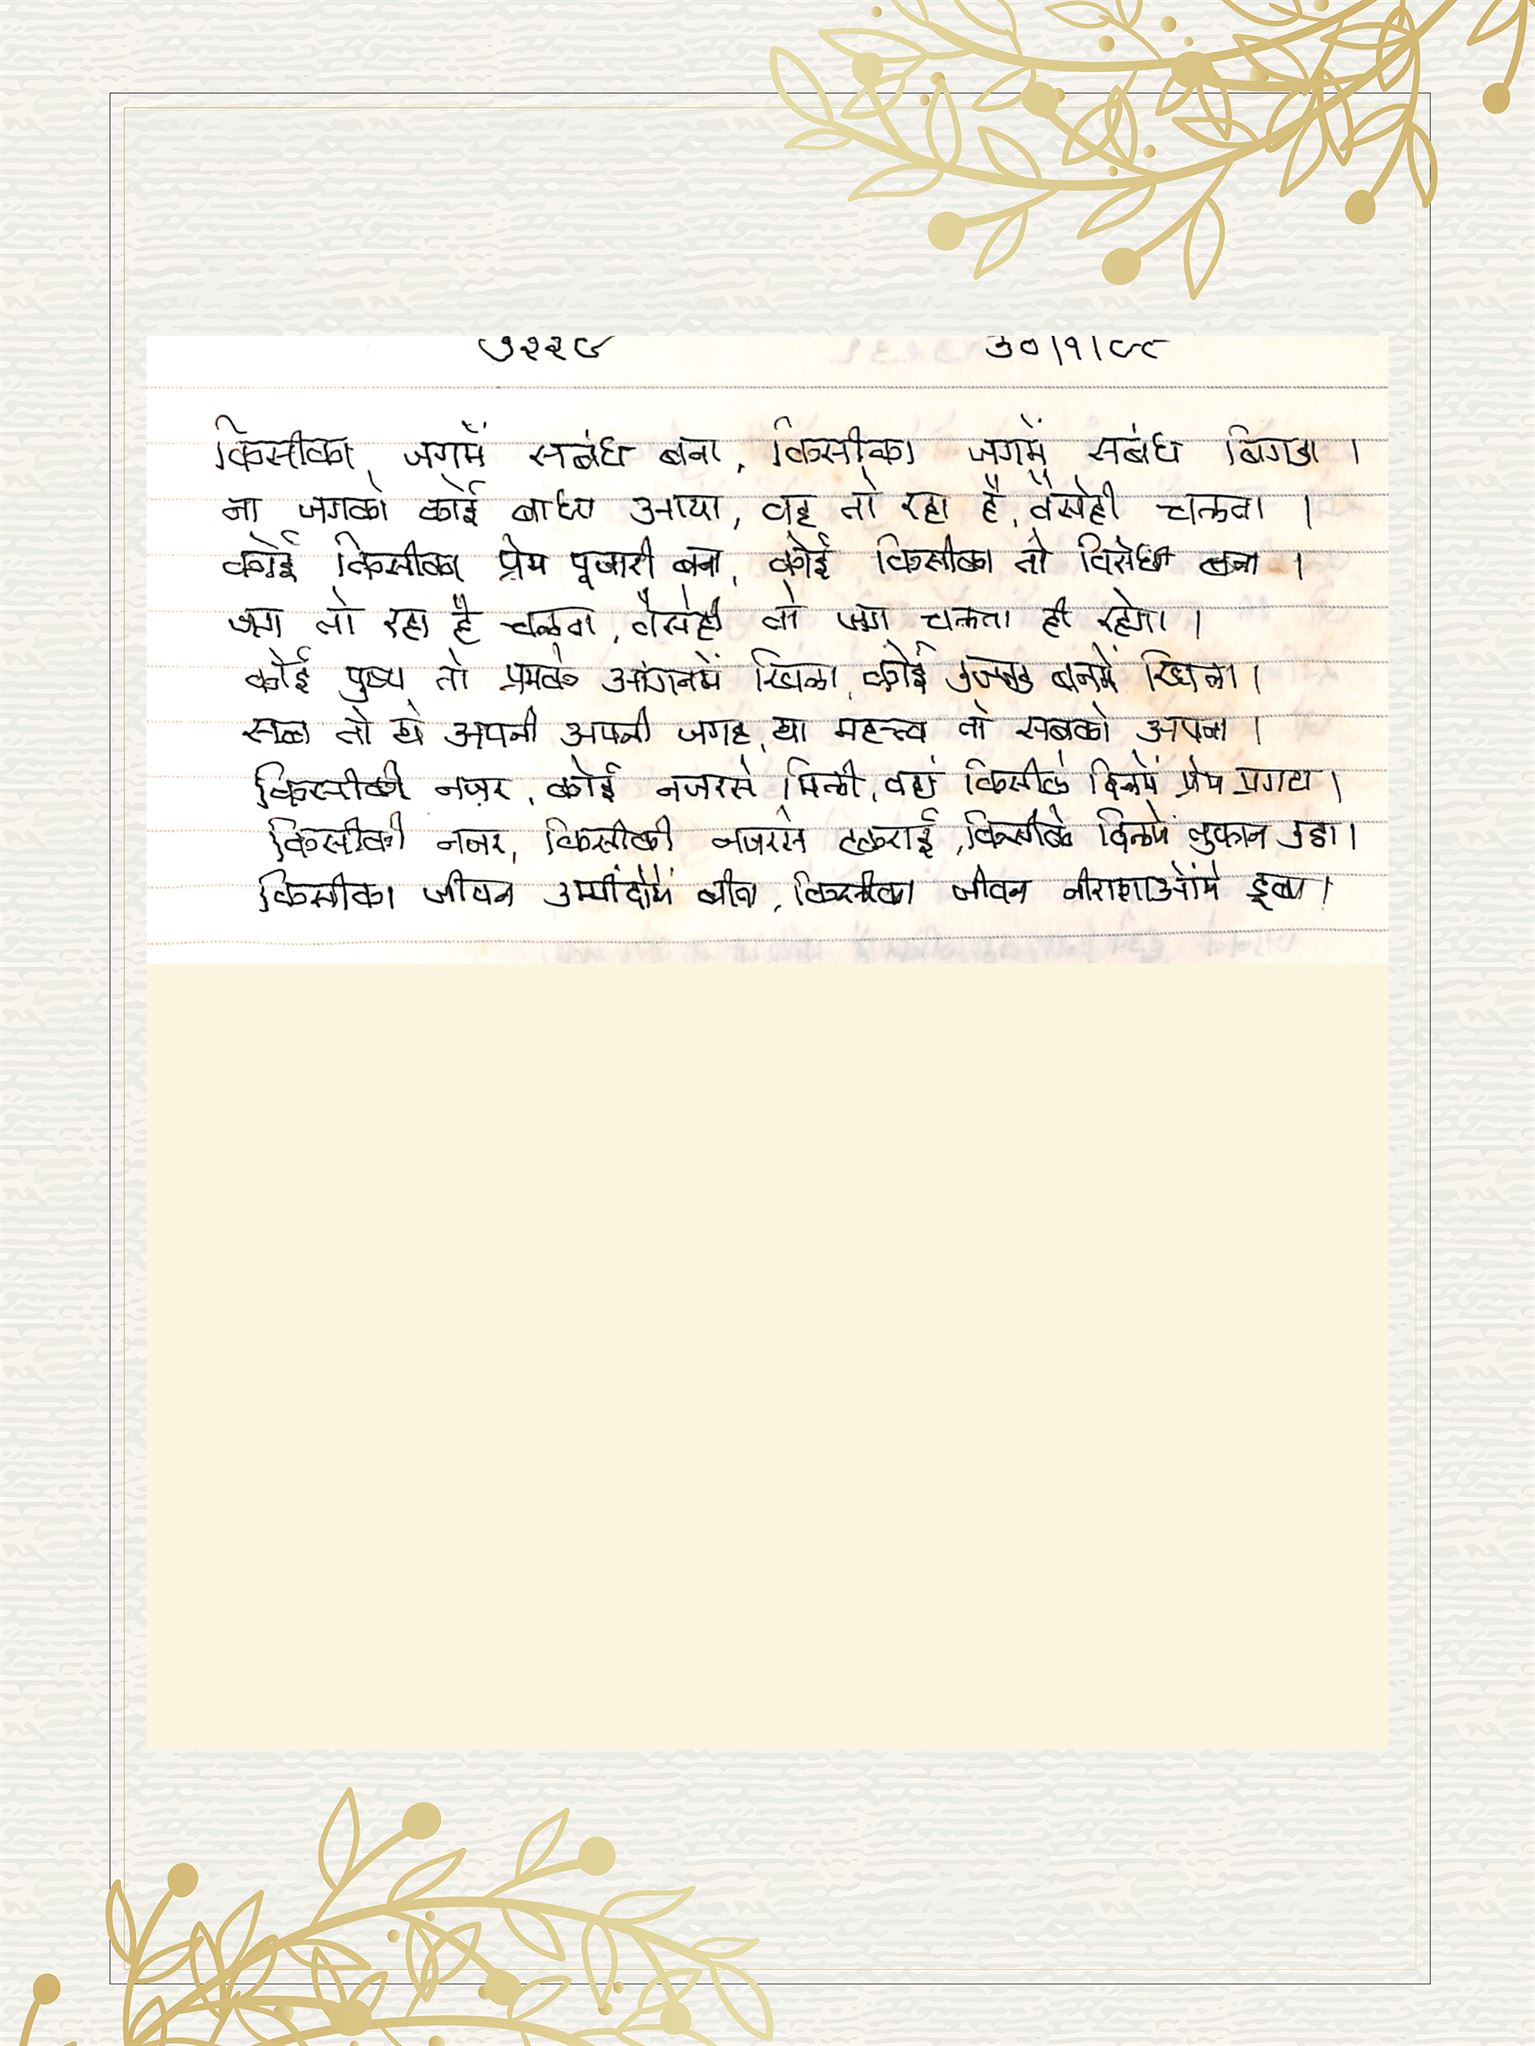 ७२२९ ३०/१/९८
किसीका, जगमें सबंध बना, किसीका जगमें सबंध बिगडा ।
ना जगको कोई बाधा आया, वह तो रहा है, वैसेही चलता ।
कोई किसीका प्रेम पूजारी बना, कोई किसीका तो विरोधी बना ।
जग तो रहा है चलता, वैसेही तो जग चलता ही रहेगा ।
कोई पुष्प तो प्रेमके आंगनमें खिला, कोई उज्जड बनमें खिला ।
सब तो थे अपनी अपनी जगह, था महत्त्व तो सबको अपना ।
किसीकी नज़र, कोई नजरसे मिली, वहां किसीके दिलमें प्रेम प्रगटा ।
किसीकी नजर, किसीकी नजरसे टकराई, किसीके दिलमें तुफान उठा ।
किसीका जीवन उम्मीदोमें बीता, किसीका जीवन नीराशाओंमे डूबा ।